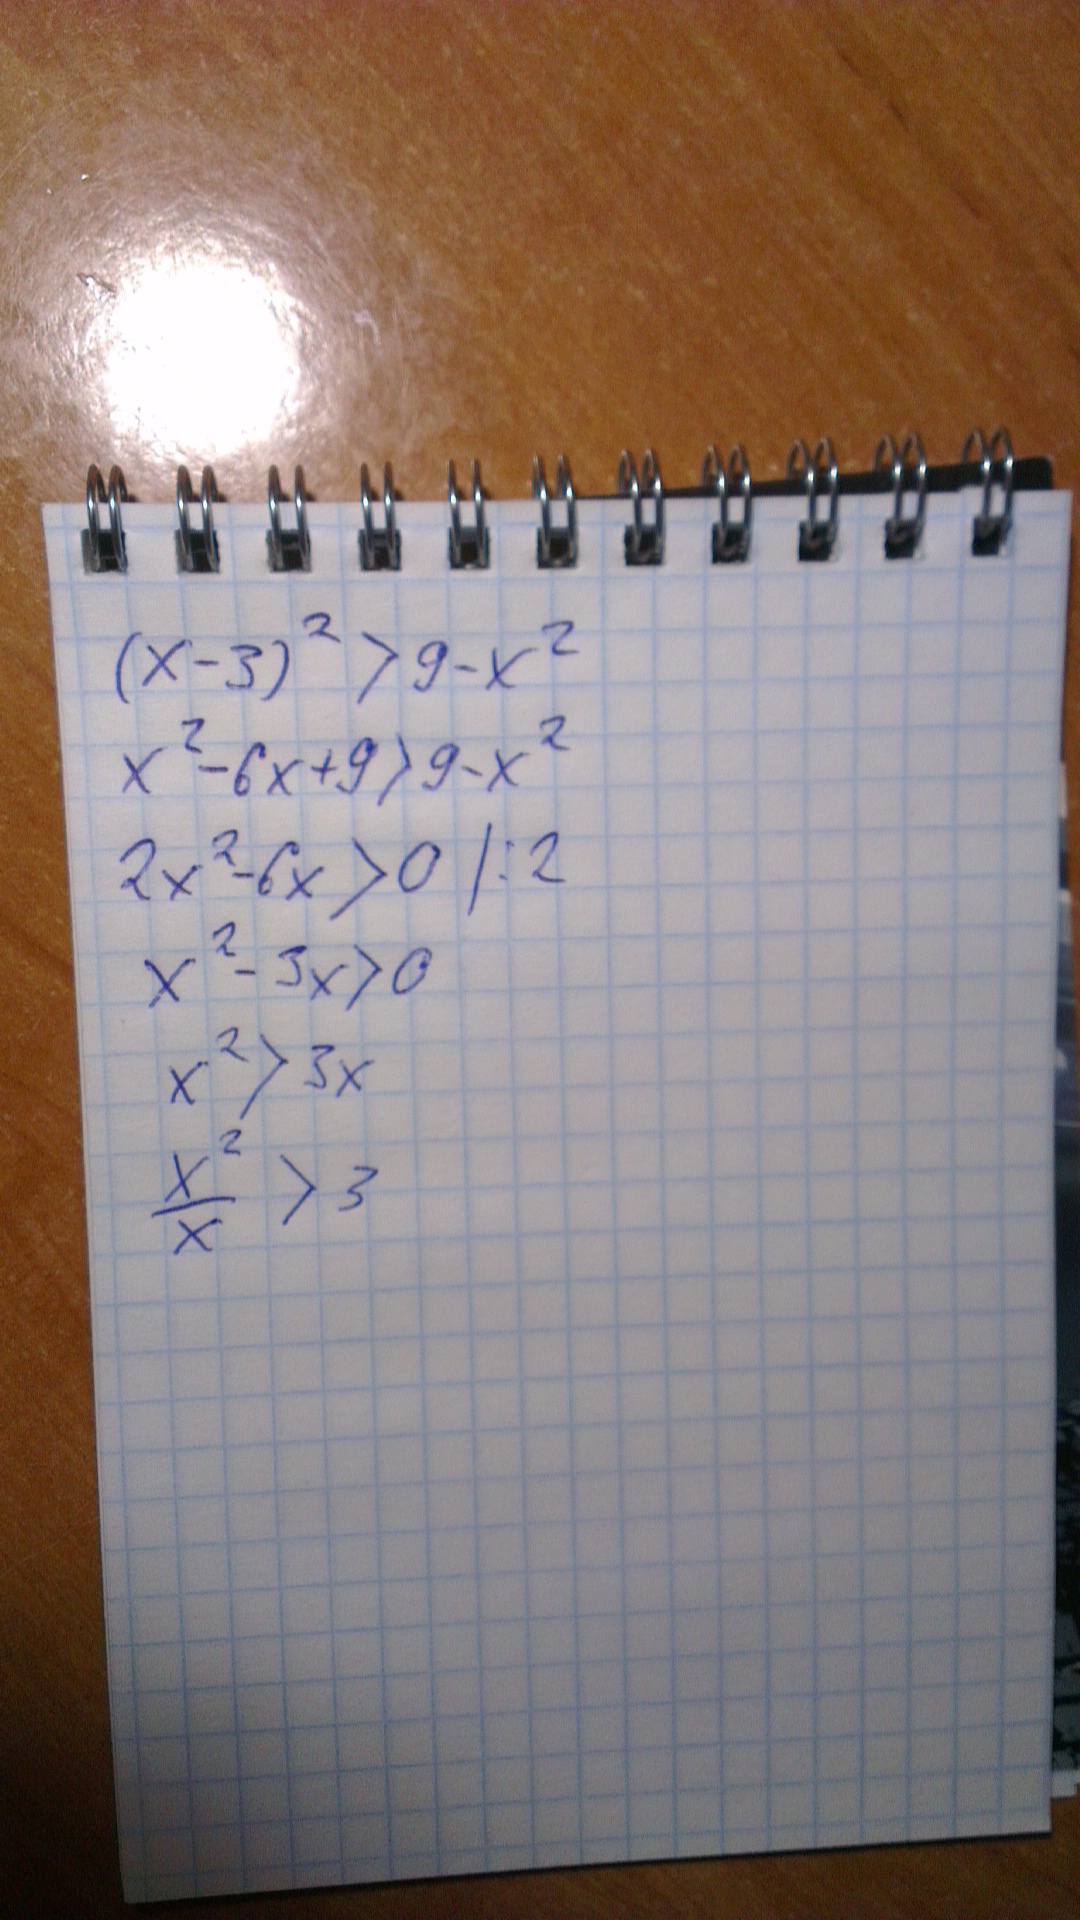 (x-3)² > 9-x²
x²-6x+9>9-x²
2x²-6x>0 /:2
x²-3x>0
x²>3x
x²/x > 3